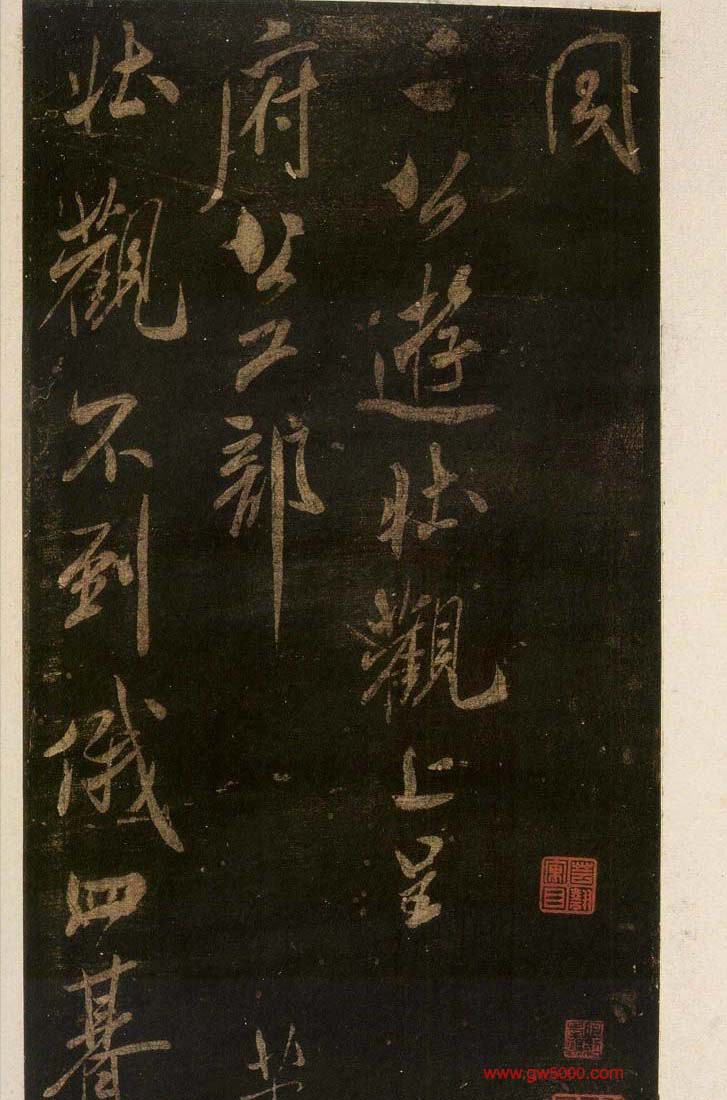 同
二公遊壯觀上呈
府公工部
壯觀不到俄四朞
www.gw5000.com